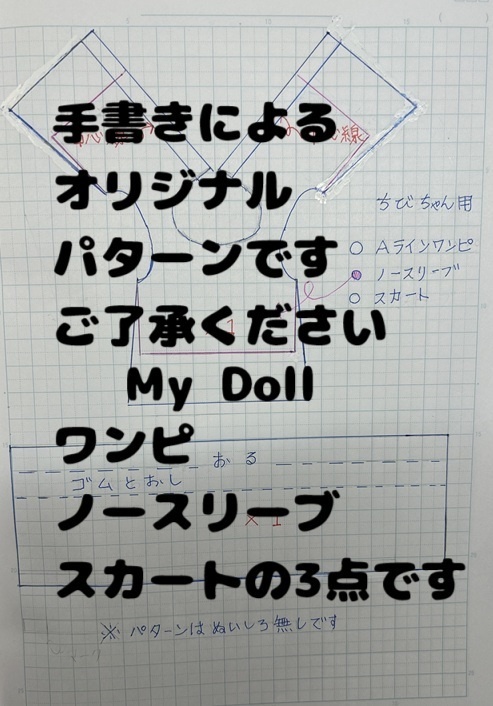 手書きによる
オリジナル
パターンです
ご了承ください
My Doll
ワンピ
ノースリーブ
スカートの3点です
ちびちゃん用
○ Aラインワンピ
ノースリーブ
○ スカート
線
1
おる
ゴムとおし
× 1
※ パターンはぬいしろ無しです